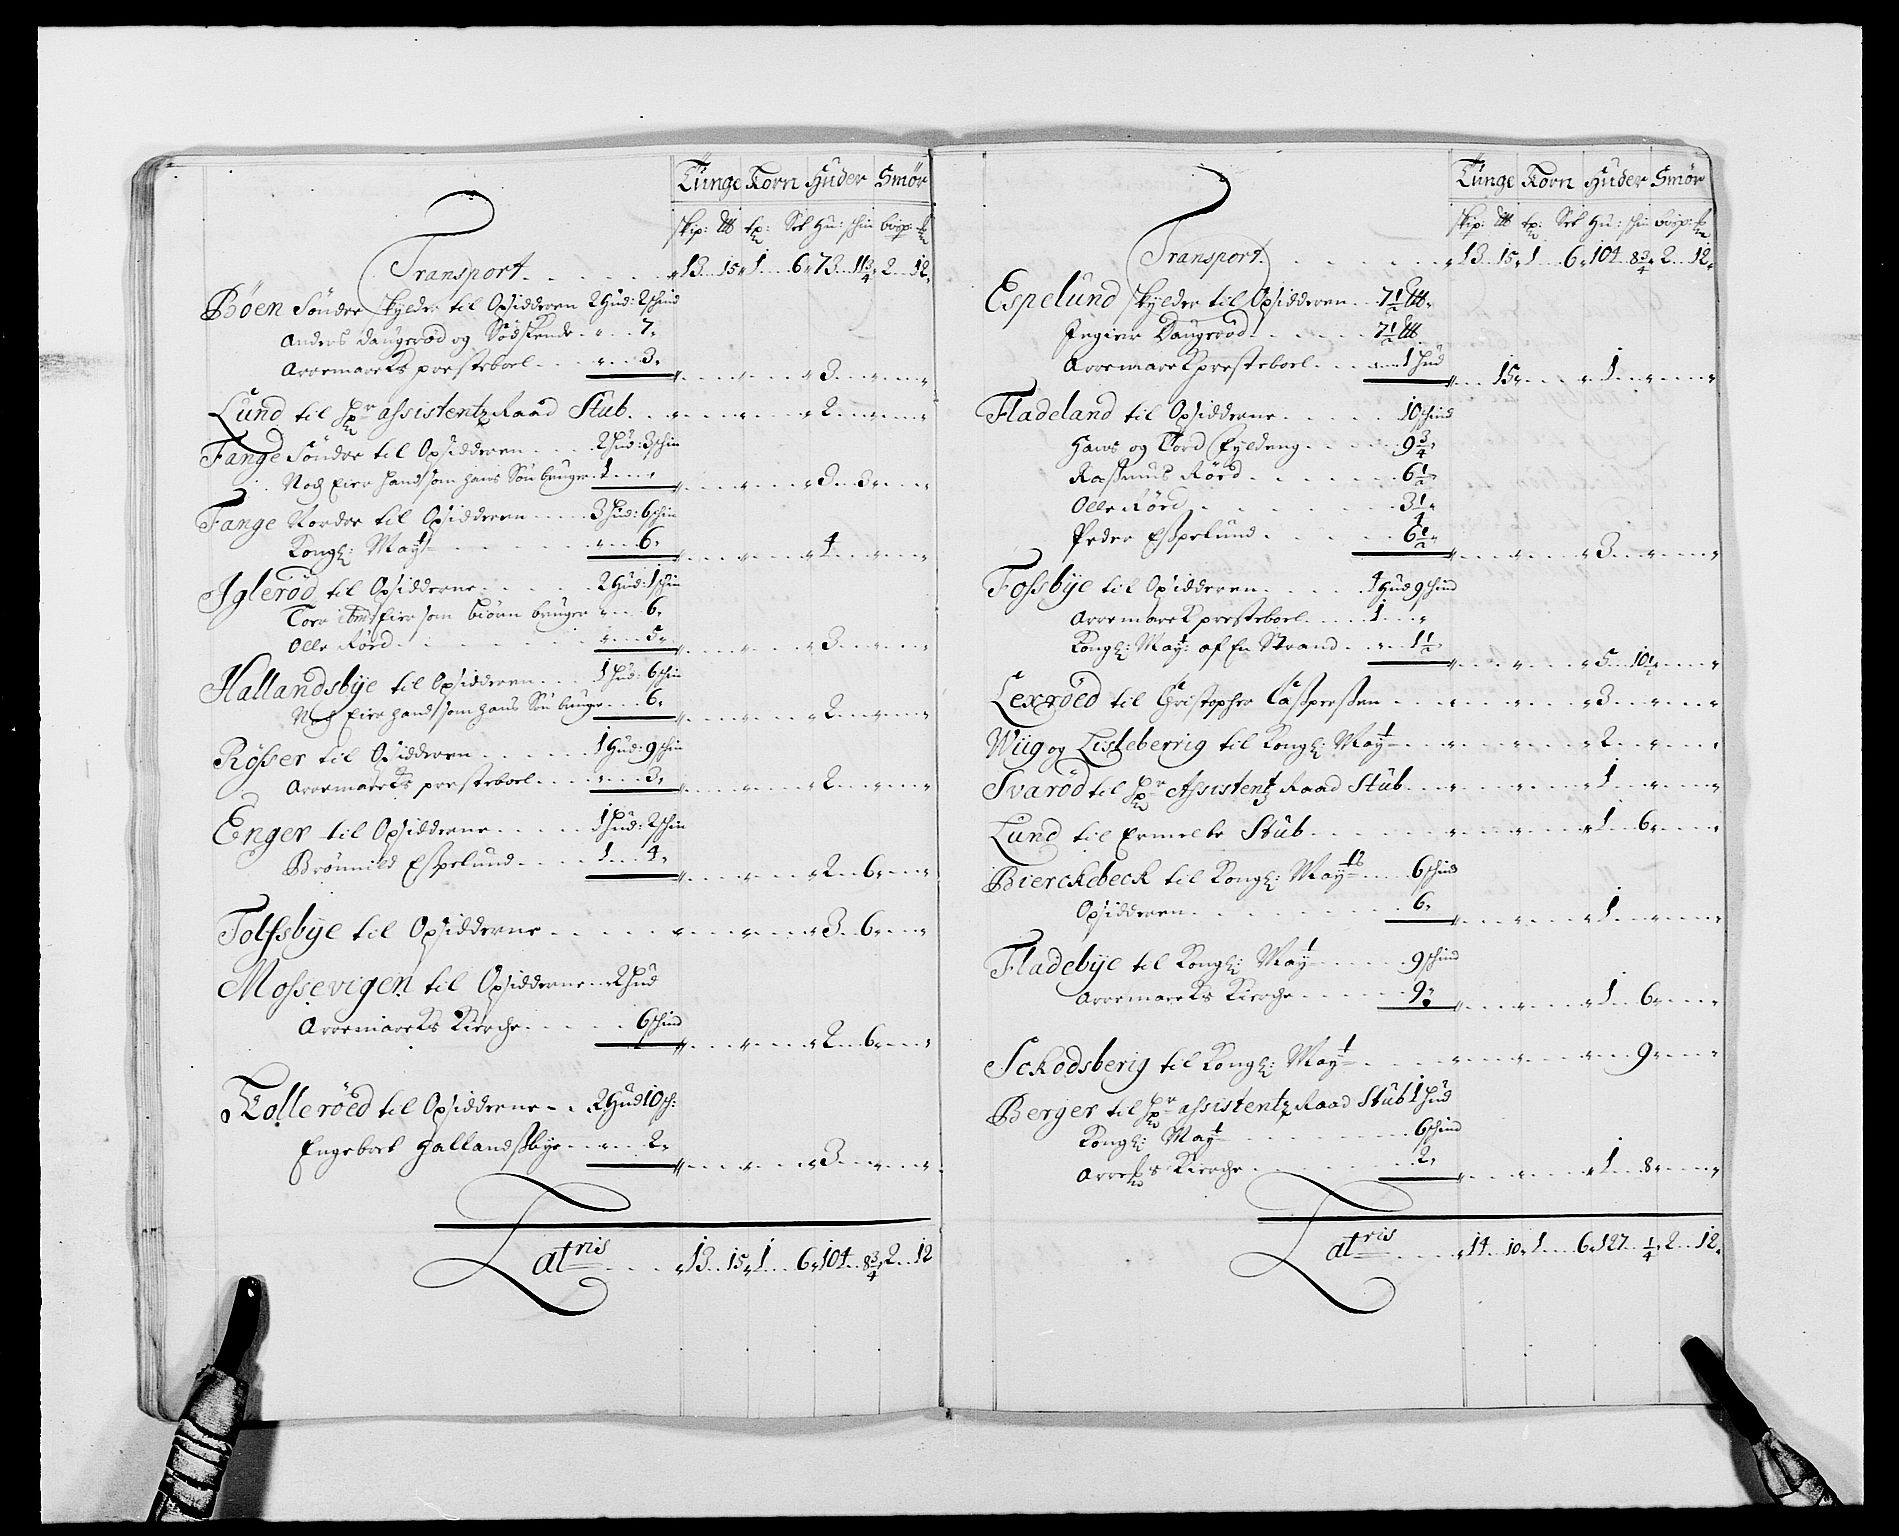 Tunge Korn Huder Smör
skip: ℔ tp: Set Hu: schin bòsp: ℔
Transport . . . . . 13 . . 15 . 1 . . 6 . 73 . . 11 3/4 . 2 . . 12
Böen Söndre skylder til Opsidderen 2 Hud: 2 schind
Anders Daugerød og Södskende . . „ . . . 7 „
Arremarcks presteboel . . . „ . . . 3 „ 3
Lund til Hr assistentz Raad Stub . . . 2
Fange Söndre til Opsidderen . . . 2 Hud: 3 schin
Noch Eier hand som hans Sön bruger . 1 . . . „ 3 . . 3
Fange Nordre til Opsidderen . . . 3 Hud: 6 schin
Kongl: Mayt . . . „ . . . 6 „ 4
Iglerød til Opsidderne . . . 2 Hud: 1 schin
Tore Eier som biörn bruger „ . . . 6 „
Olle Rörd . . . „ . . . 5 „ 3
Hallandsbye til Opsidderen . . . 1 Hud: 6 schin
Noch Eier hand som hans Sön bruger . . . 6 „ 2
Rösser til Opsidderen . . . 1 Hud: 9 schin
Arremarcks presteboel . . . „ . . . 3 „ 2
Enger til Opsidderne . . . 1 Hud: 2 schin
Brönnild Espelund . . . 1 . . . 4 „ 2 . . 6
Tolfsbye til Opsidderne . . . 3 . . 6
Mossevigen til Opsidderne 2 Hud
Arremarcks Kirche . . . 6 schind 2 . . 6
Kolleröed til Opsidderne . . 2 Hud 10 sch:
Engebort Hallandsbye . . „ . . 2 „ 3
Latris . . . 13 . . 15 . 1 . . 6 . 104 . . 8 3/4 . 2 . . 12
Tunge Korn Huder Smör
skip: ℔ tp: Set Hu: schin bòsp: ℔
Transport . . . 13 . . 15 . 1 . . 6 . 104 . . 8 3/4 . 2 . . 12
Espelund skylder til Opsidderen . . 7 1/2 ℔
Ingier Daugerød . . . 7 1/2 ℔
Arremarck presteboel . . . 1 Hud 15 . . . 1
Fladeland til Opsidderne . . . 10 schind
Hans og Tord Skyldeng . . . 9 3/4
Rasmus Rörd . . . 6 1/2
Olle Rörd . . . 3 1/4
Peder Espelund . . . 6 1/2 3
Fossbye til Opsidderen . . . 4 Hud 9 schind
Arremarck presteboel . . . 1 . . . „
Kongl: May: af En Strand . . . 1 1/2 5 . . 10 1/2
Lexröed til Christopher Casspersen . . . 3
Wiig og Listeberrig til Kongl: Mayt . . . 2
Svaröd til Hr Assistentz Raad Stub . . . 1
Lund til Ermelte Stub . . . 1 . . 6
Bierckebeck til Kongl: Mayts . . . 6 schind
Opsidderen . . . 6 „ 1
Fladebye til Kongl: Mayt . . . 9 schind
Arremarcks Kirche . . . 9 „ 1 . . 6
Sckodsberig til Kongl: Mayt . . . 9
Berger til Hr assistentz Raad Stub 1 Hud
Kongl: Mayt . . . 6 schind
Arrems Kirche . . . 2 „ 1 . . 8
Latris . . . 14 . . 10 . 1 . . 6 . 127 . . 1/4 . 2 . . 12